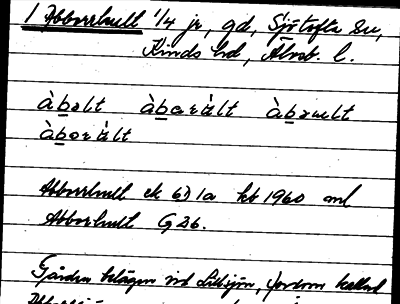 1 Abborrhult 1/4 jr, gd, Sjötofta sn,
Kinds hd, Älvsb. l.
àb̲əlt àb̲əràlt àb̲əult
àb̲əràlt
Abborrhult ek 6D 1a kb 1960 ml
Abborhult G 26.
Gården belägen vid Lillsjön, fordom kallad